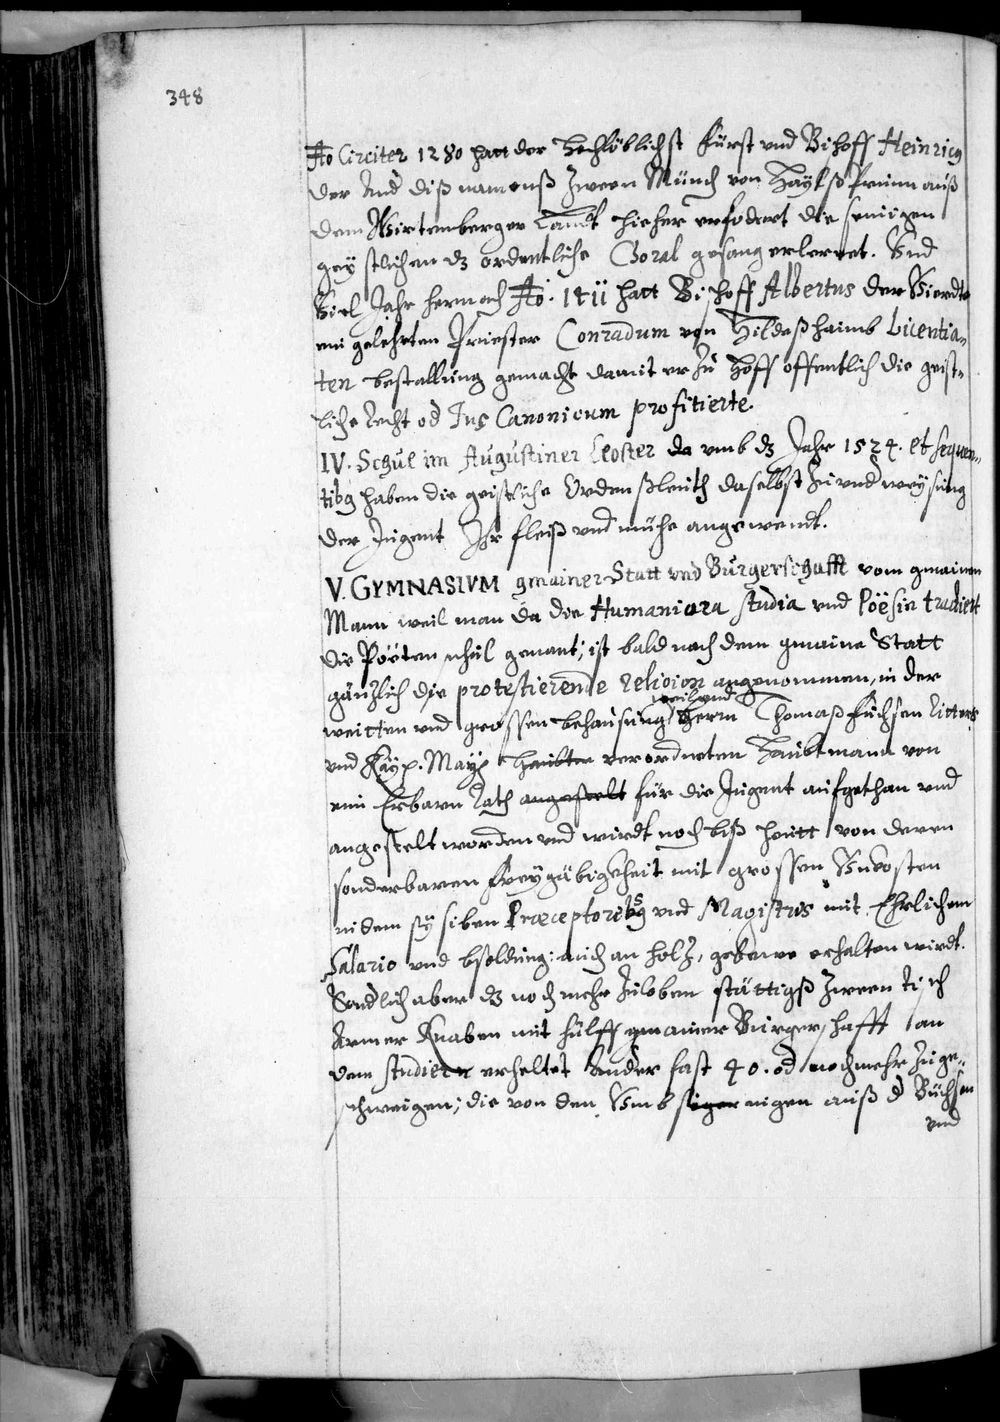 348
Ao Circiter 1280 hatt der Hochlöblichst Fürst vnd Bischoff Heinricg
der And diß namenß zween Münch von Haylßprunn auß
dem Wirtemberger Landt hieher erfodert die seinigen
geystlichen dz ordentliche Coral gesang erlernet. Vnd
Viel Jahr hernach Ao. 14ii hatt Bischoff Albertus der Vierdte
ein gelehrten Priester Conradum von Hildeßhaimb Licentia„
ten bestallung gemacht damit er Zu Hoff offentlich die geist„
liche Recht od Jus Canonicum profitierte.
IV. Schul im Augustiner Closter da vmb dz Jahr 1524. et sequen„
tibg haben die geistliche Ordenßleuth daselbst Zu vnd weysung
der Jugent Jhr fleiß vnd mühe angewendt.
V. GYMNASIVM gmainer Statt vnd Burgerschafft vom gmainen
Mann weil man da die Humaniora studia vnd Poësin tradiert
die Poëten schul genant; ist bald nach dem gmaine Statt
gänzlich die protestierende religion angenommen, in der
weilend
weitten vnd grossen behausung Herrn Thomaß Fuchsen Ritters
vnd Kayß. May. haubten verordneten Haubtmann von
eim Erbarn Rath angestelt für die Jugent aufgethan vnd
angestelt worden vnd wirdt noch biß heutt von deren
sonderbaren Freygäbigkheit mit grossen Vncosten
in dem sÿ siben Præceptoribg vnd Magistris mit Ehrlichem
Salario vnd bsoldung: auch an holz, gebewe erhalten wirdt.
Endlich aber dz noch mehr Zuloben stättigß zween tisch
Armer Knaben mit hülff gmainer Burgerschafft an
dem studiern erheltet Ander fast 40. od noch mehr Zuge„
schweigen; die von den Vmbsiger nigen auß d Büchsen
vnd